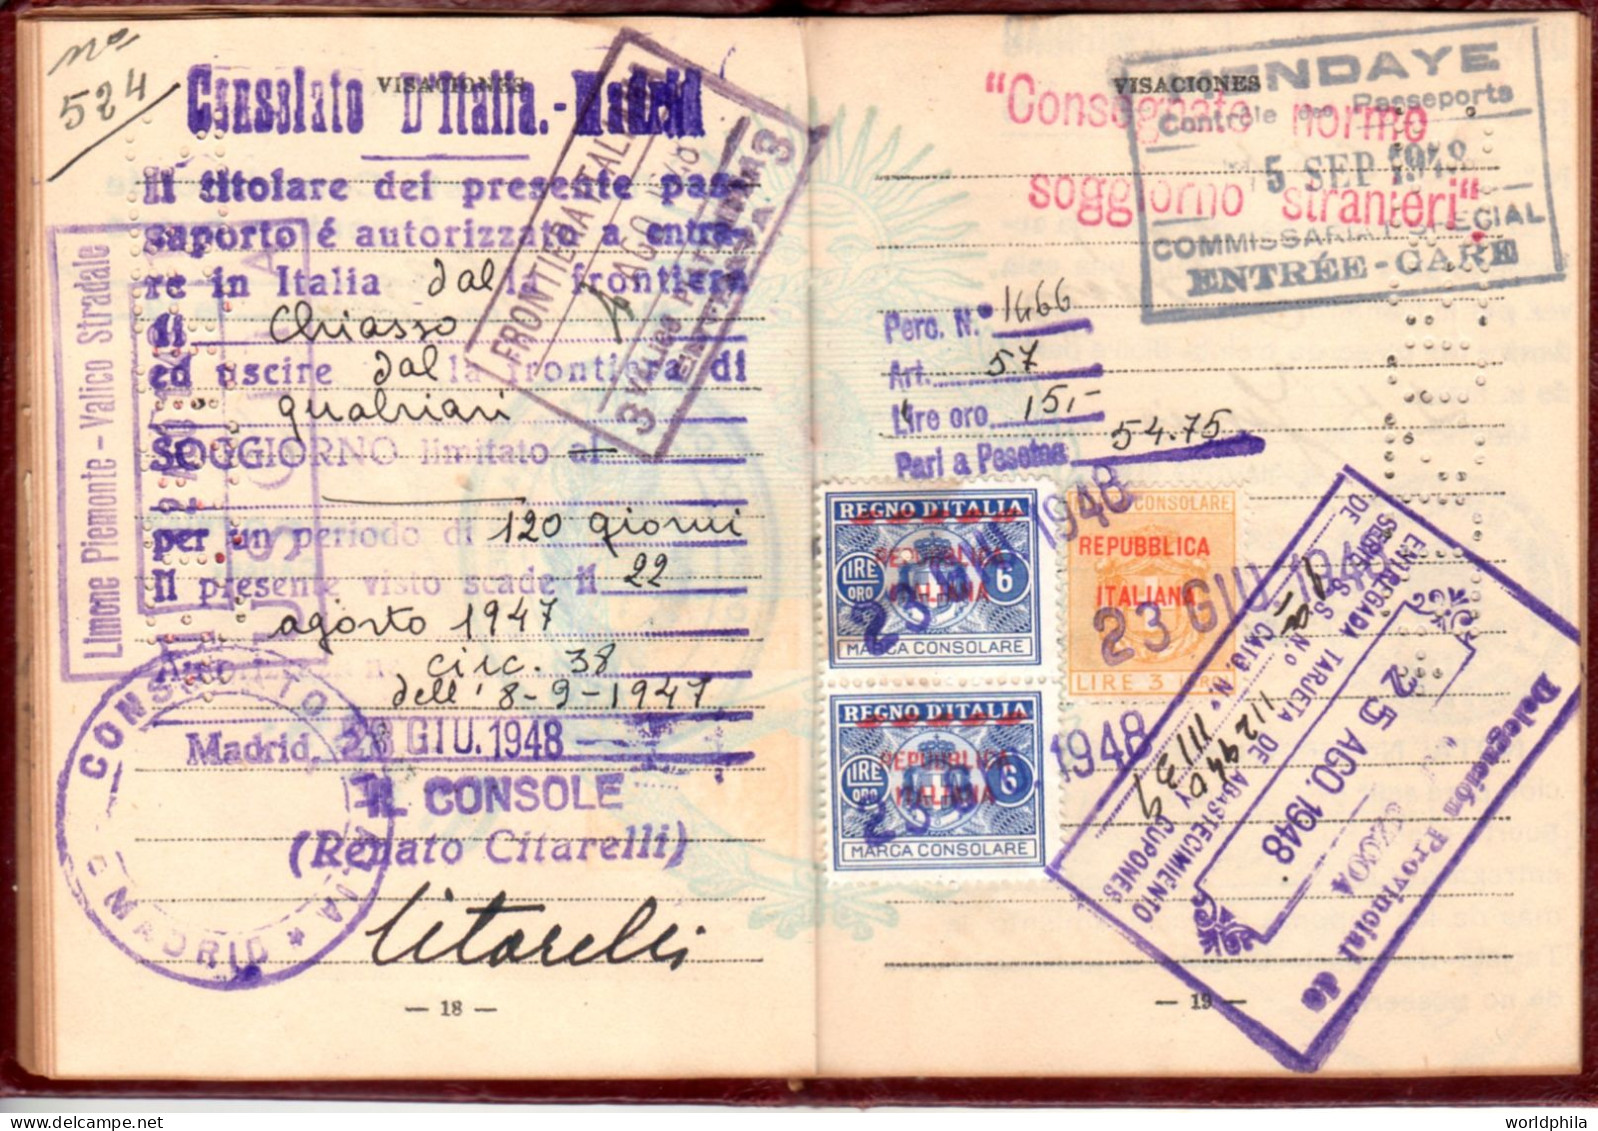 nº
524
VISACIONES
Consolato D'Italia.-Madrid
Il titolare del presente pas-
saporto é autorizzato a entra-
re in Italia dalla frontiera
di Chiasso
ed uscire dalla frontiera di
qualsiasi
SOGGIORNO limitato al
per un periodo di 120 giorni
Il presente visto scade il 22
agosto 1947
circ. 38
dell' 8-9-1947
Madrid, 23 GIU. 1948
IL CONSOLE
(Renato Citarelli)
Citarelli
CONSOLATO D'ITALIA
* MADRID *
Limone Piemonte - Valico Stradale
USCITA
FRONTIERA ITALIANA
AGO 1948
3 3
— 18 —
VISACIONES
"Consegnate norme
soggiorno stranieri"
HENDAYE
Contrôle des Passeports
5 SEP 1948
COMMISSARIAT SPECIAL
ENTRÉE-GARE
Perc. N.º 1466
Art. 57
Lire oro 15,-
Pari a Pesetas 54.75
REGNO D'ITALIA
REPUBBLICA
ITALIANA
LIRE ORO 6
MARCA CONSOLARE
23 GIU 1948
REGNO D'ITALIA
REPUBBLICA
ITALIANA
LIRE ORO 6
MARCA CONSOLARE
23 GIU. 1948
CONSOLARE
REPUBBLICA
ITALIANA
LIRE 3
23 GIU. 1948
Delegación Provincial de
25 AGO. 1948
ENTREGADA TARJETA DE ABASTECIMIENTO
DE
SERIE S.S. N.º 112940 Y CUPONES
CATG. N.º
— 19 —
worldphila